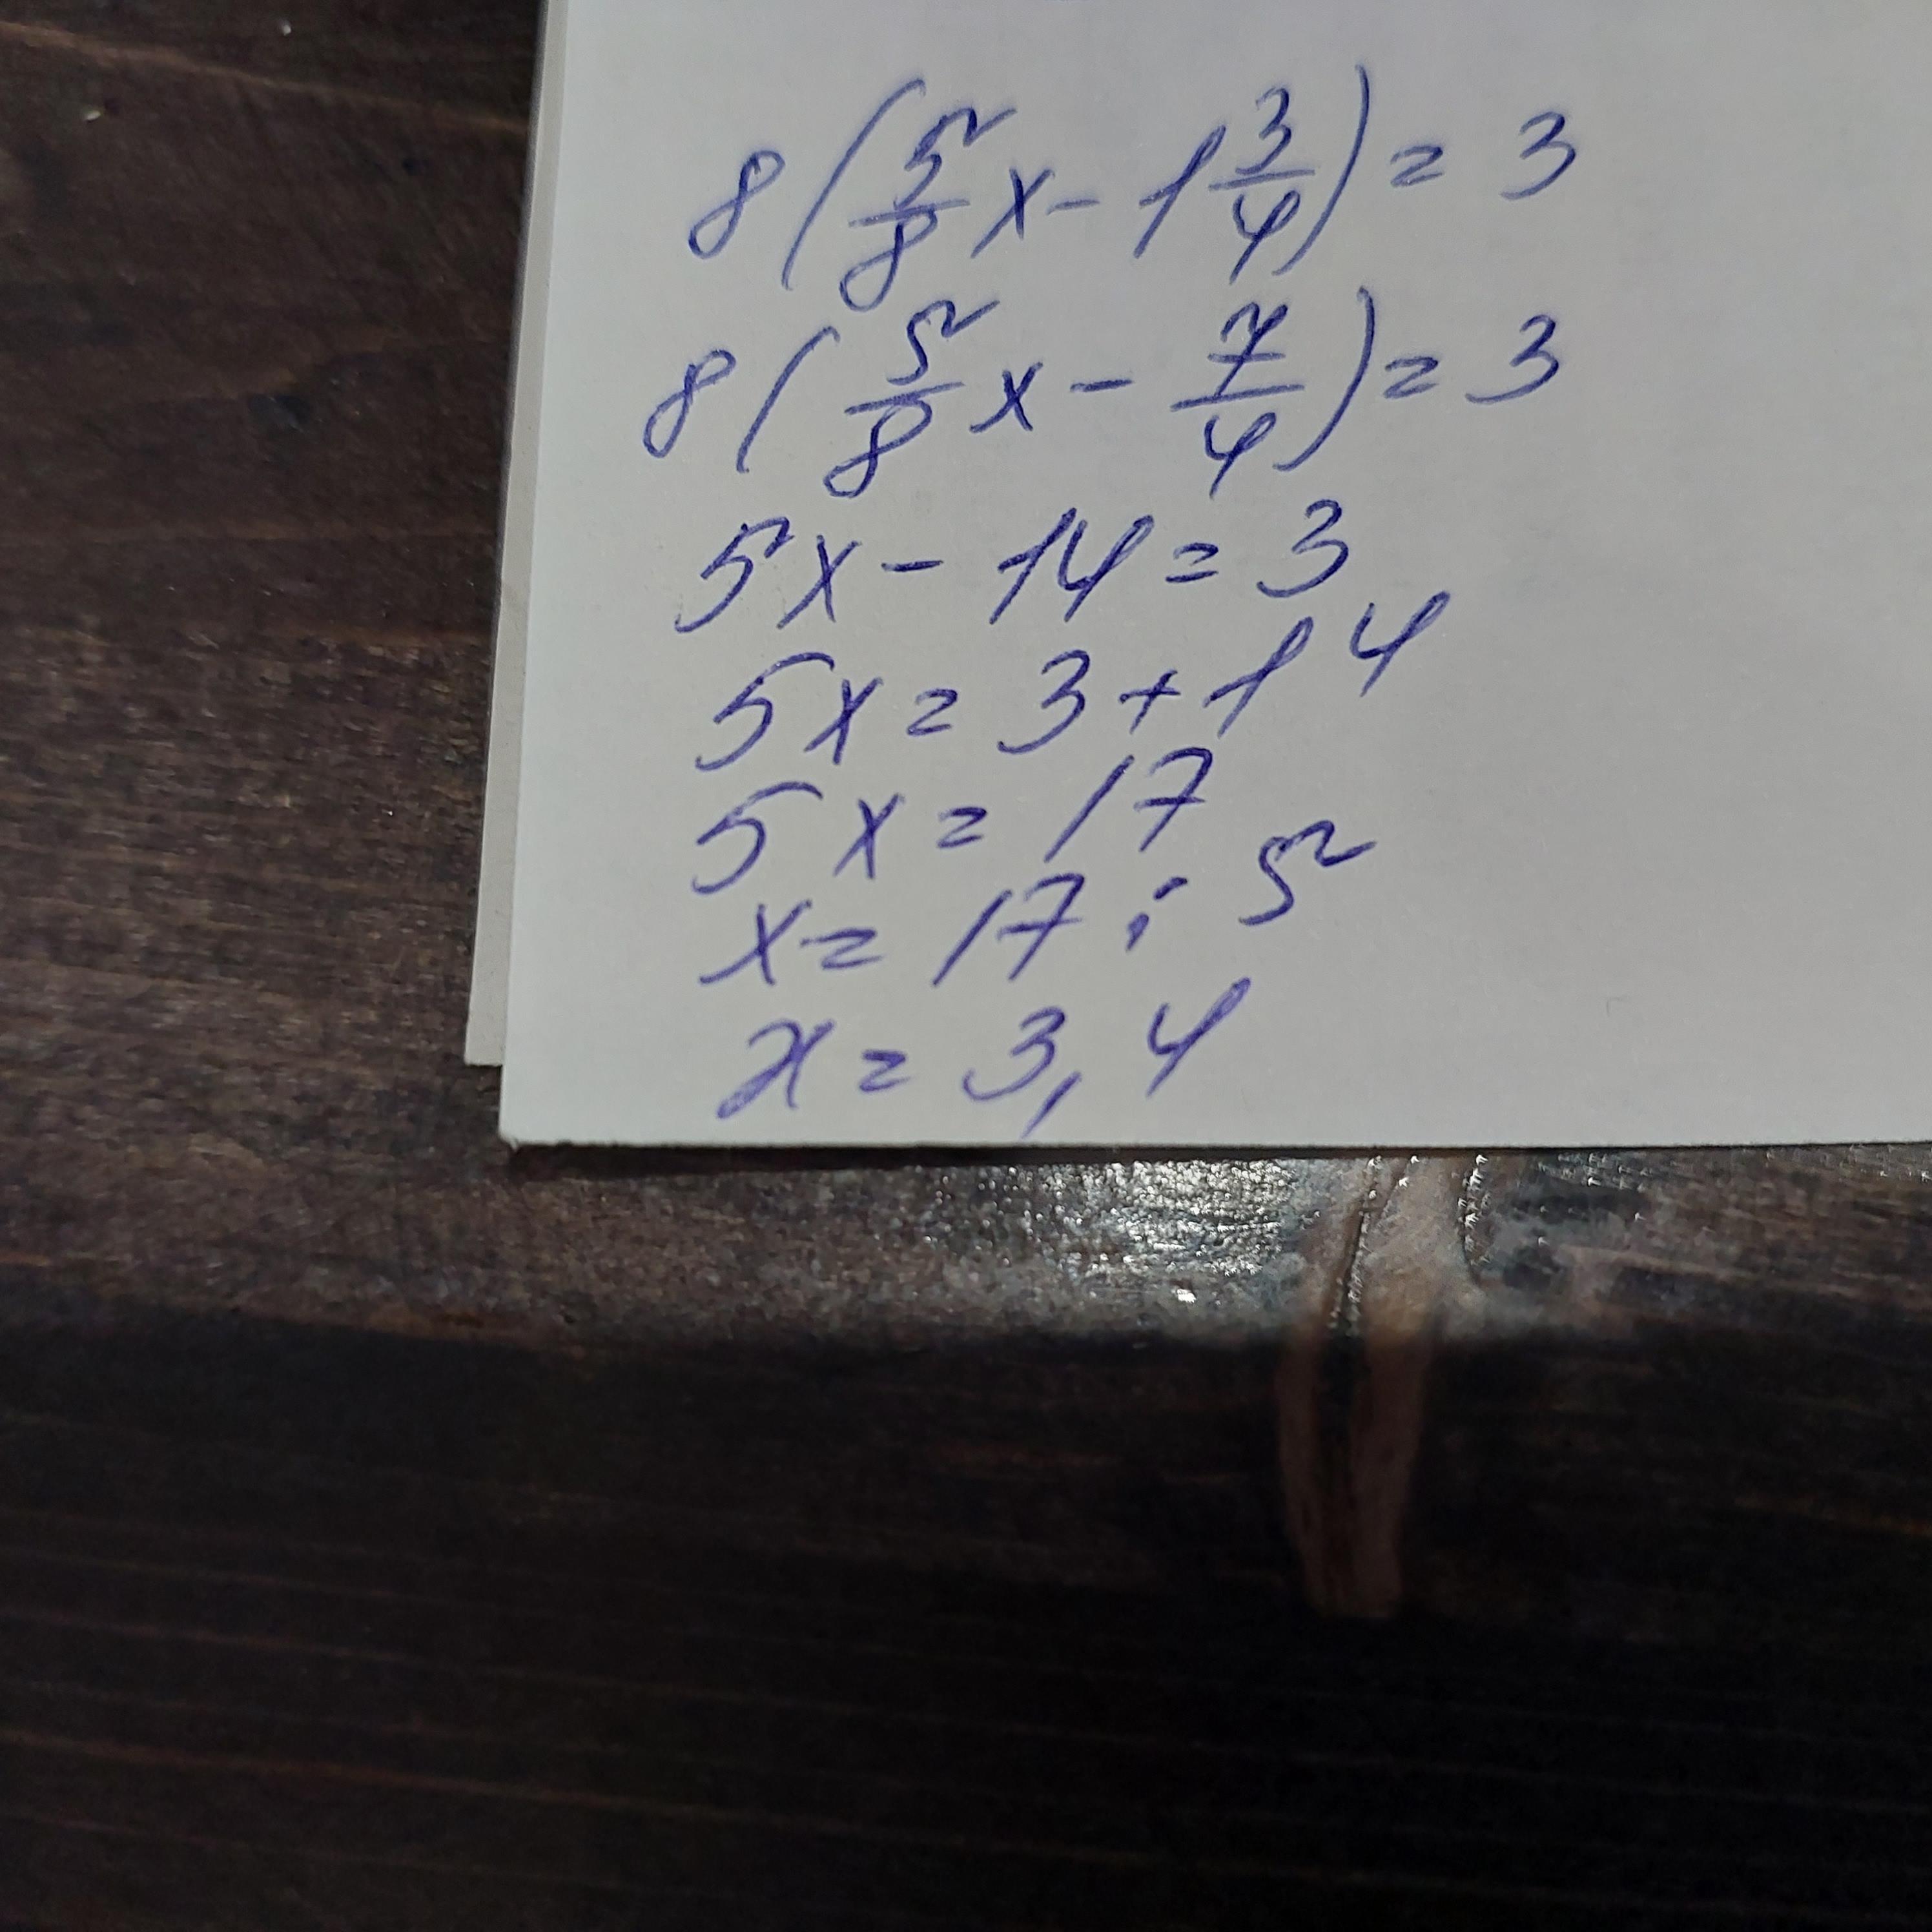 8(5/8 x - 1 3/4) = 3
8(5/8 x - 7/4) = 3
5x - 14 = 3
5x = 3 + 14
5x = 17
x = 17 : 5
x = 3,4